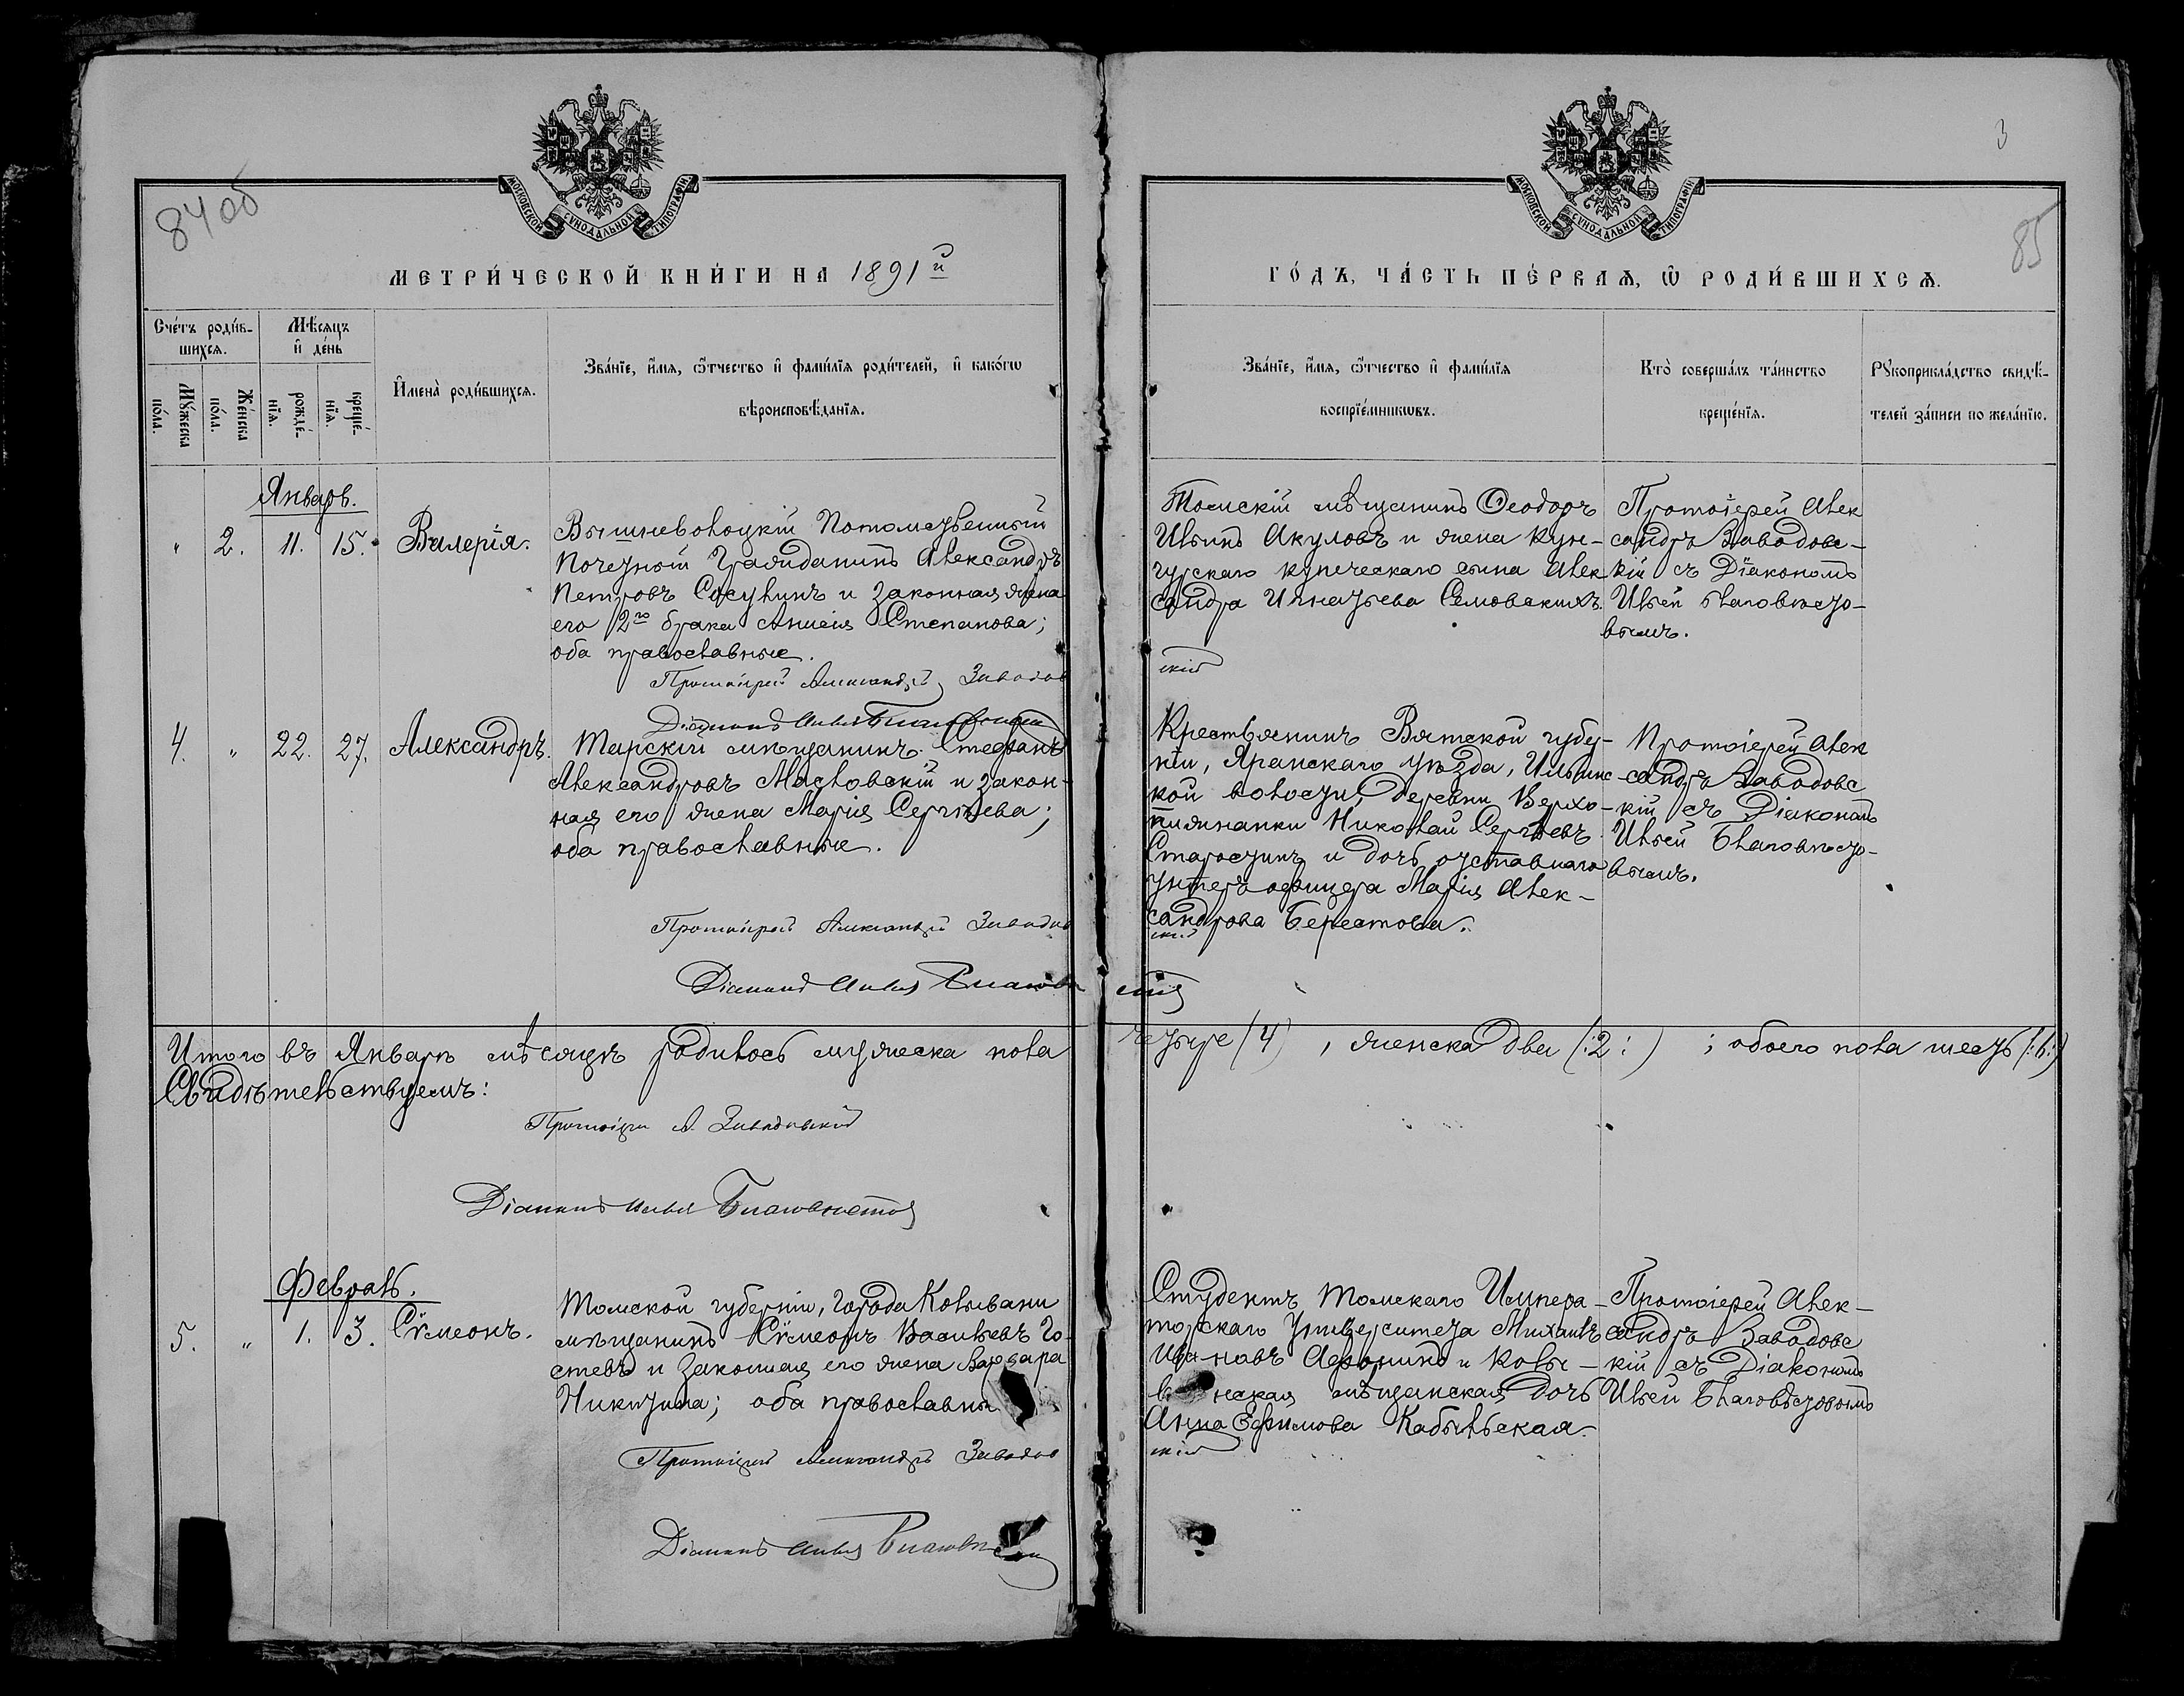 МОСКОВСКОЙ СѴНОДАЛЬНОЙ ТИПОГРАФІИ
84 об
МЕТРИ́ЧЕСКОЙ КНИ́ГИ НА 1891й
Сче́тъ роди́в-
шихсѧ.
Мѣ́сѧцъ
и҆ де́нь
Мꙋ́жеска
по́ла.
Же́нска
по́ла.
рожде́-
нїѧ.
креще́-
нїѧ.
И҆мена̀ роди́вшихсѧ.
Зва́нїе, и҆́мѧ, ѻ҆́тчество и҆ фами́лїѧ роди́телей, и҆ како́гѡ
вѣроисповѣ́данїѧ.
Январь.
" 2. 11. 15. Валерія.
Вышневолоцкій Потомственный
Почетный Гражданинъ Александръ
Петровъ Сосулинъ и законная жена
его 2го брака Анисія Степанова;
оба православные.
Протоіерей Александръ Заводов
Діаконъ Илія Благовѣстов
4. " 22. 27. Александръ.
Тарскій мѣщанинъ Стефанъ
Александровъ Масловскій и закон-
ная его жена Марія Сергѣева;
оба православные.
Протоіерей Александръ Заводов
Діаконъ Илія Благов
Итого въ Январѣ мѣсяцѣ родилось мужеска пола
Свидѣтельствуемъ:
Протоіерей А. Заводовскій
Діаконъ Илія Благовѣстов
Февраль.
5. " 1. 3. Сѵмеонъ.
Томской губерніи, города Колывани
мѣщанинъ Сѵмеонъ Васильевъ Го-
стевъ и законная его жена Варвара
Никитина; оба православны
Протоіерей Александръ Заводов
Діаконъ Илія Благовѣ
МОСКОВСКОЙ СѴНОДАЛЬНОЙ ТИПОГРАФІИ
3
85
ГО́ДЪ, ЧА́СТЬ ПЕ́РВАѦ, Ѡ҆ РОДИ́ВШИХСѦ.
Зва́нїе, и҆́мѧ, ѻ҆́тчество и҆ фами́лїѧ
воспрїе́мникѡвъ.
Кто̀ соверша́лъ та́инство
креще́нїѧ.
Рꙋкоприкла́дство свидѣ́-
телей за́писи по жела́нїю.
Томскій мѣщанинъ Ѳеодоръ
Ильинъ Акуловъ и жена Кун-
гурскаго купеческаго сына Алек
сандра Игнатьева Семовскихъ.
скій
Протоіерей Алек
сандръ Заводовс-
кій съ Діакономъ
Иліей Благовѣсто-
вымъ.
Крестьянинъ Вятской губер-
ніи, Яранскаго уѣзда, Ильинс-
кой волости, деревни Верхо-
пижнанки Николай Сергѣевъ
Старостинъ и дочь отставнаго
унтеръ офицера Марія Алек-
сандрова Берестова.
скій
Протоіерей Алек
сандръ Заводовс
кій съ Діакономъ
Иліей Благовѣсто-
вымъ.
четыре (4), женска два (:2:); обоего пола шесть (:6:)
Студентъ Томскаго Импера-
торскаго Университета Михаилъ
Ивановъ Афонинъ и Колы-
в нская мѣщанская дочь
Анна Ефимова Кабыльская.
скій
Протоіерей Алек-
сандръ Заводовс
кій съ Діакономъ
Иліей Благовѣстовымъ